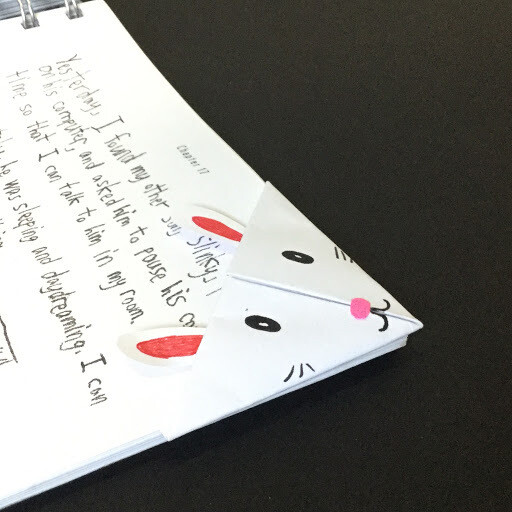 Chapter 17
Yesterday, I found my other guy, slinky,
on his computer, and asked him to pause his
time so that I can talk to him in my room.
he was sleeping and daydreaming. I can